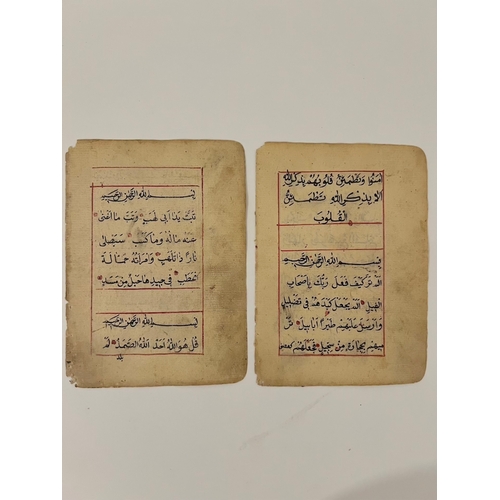 امنوا وتطمئن قلوبهم بذكر الله
الا بذكر الله تطمئن
القلوب
بسم الله الرحمن الرحيم
الم تر كيف فعل ربك باصحاب
الفيل الم يجعل كيدهم في تضليل
وارسل عليهم طيرا ابابيل تر
ميهم بحجارة من سجيل فجعلهم كعصف
بسم الله الرحمن الرحيم
تبت يدا ابي لهب وتب ما اغنى
عنه ماله وما كسب سيصلى
نارا ذات لهب وامراته حمالة
الحطب في جيدها حبل من مسد
بسم الله الرحمن الرحيم
قل هو الله احد الله الصمد لم
يلد